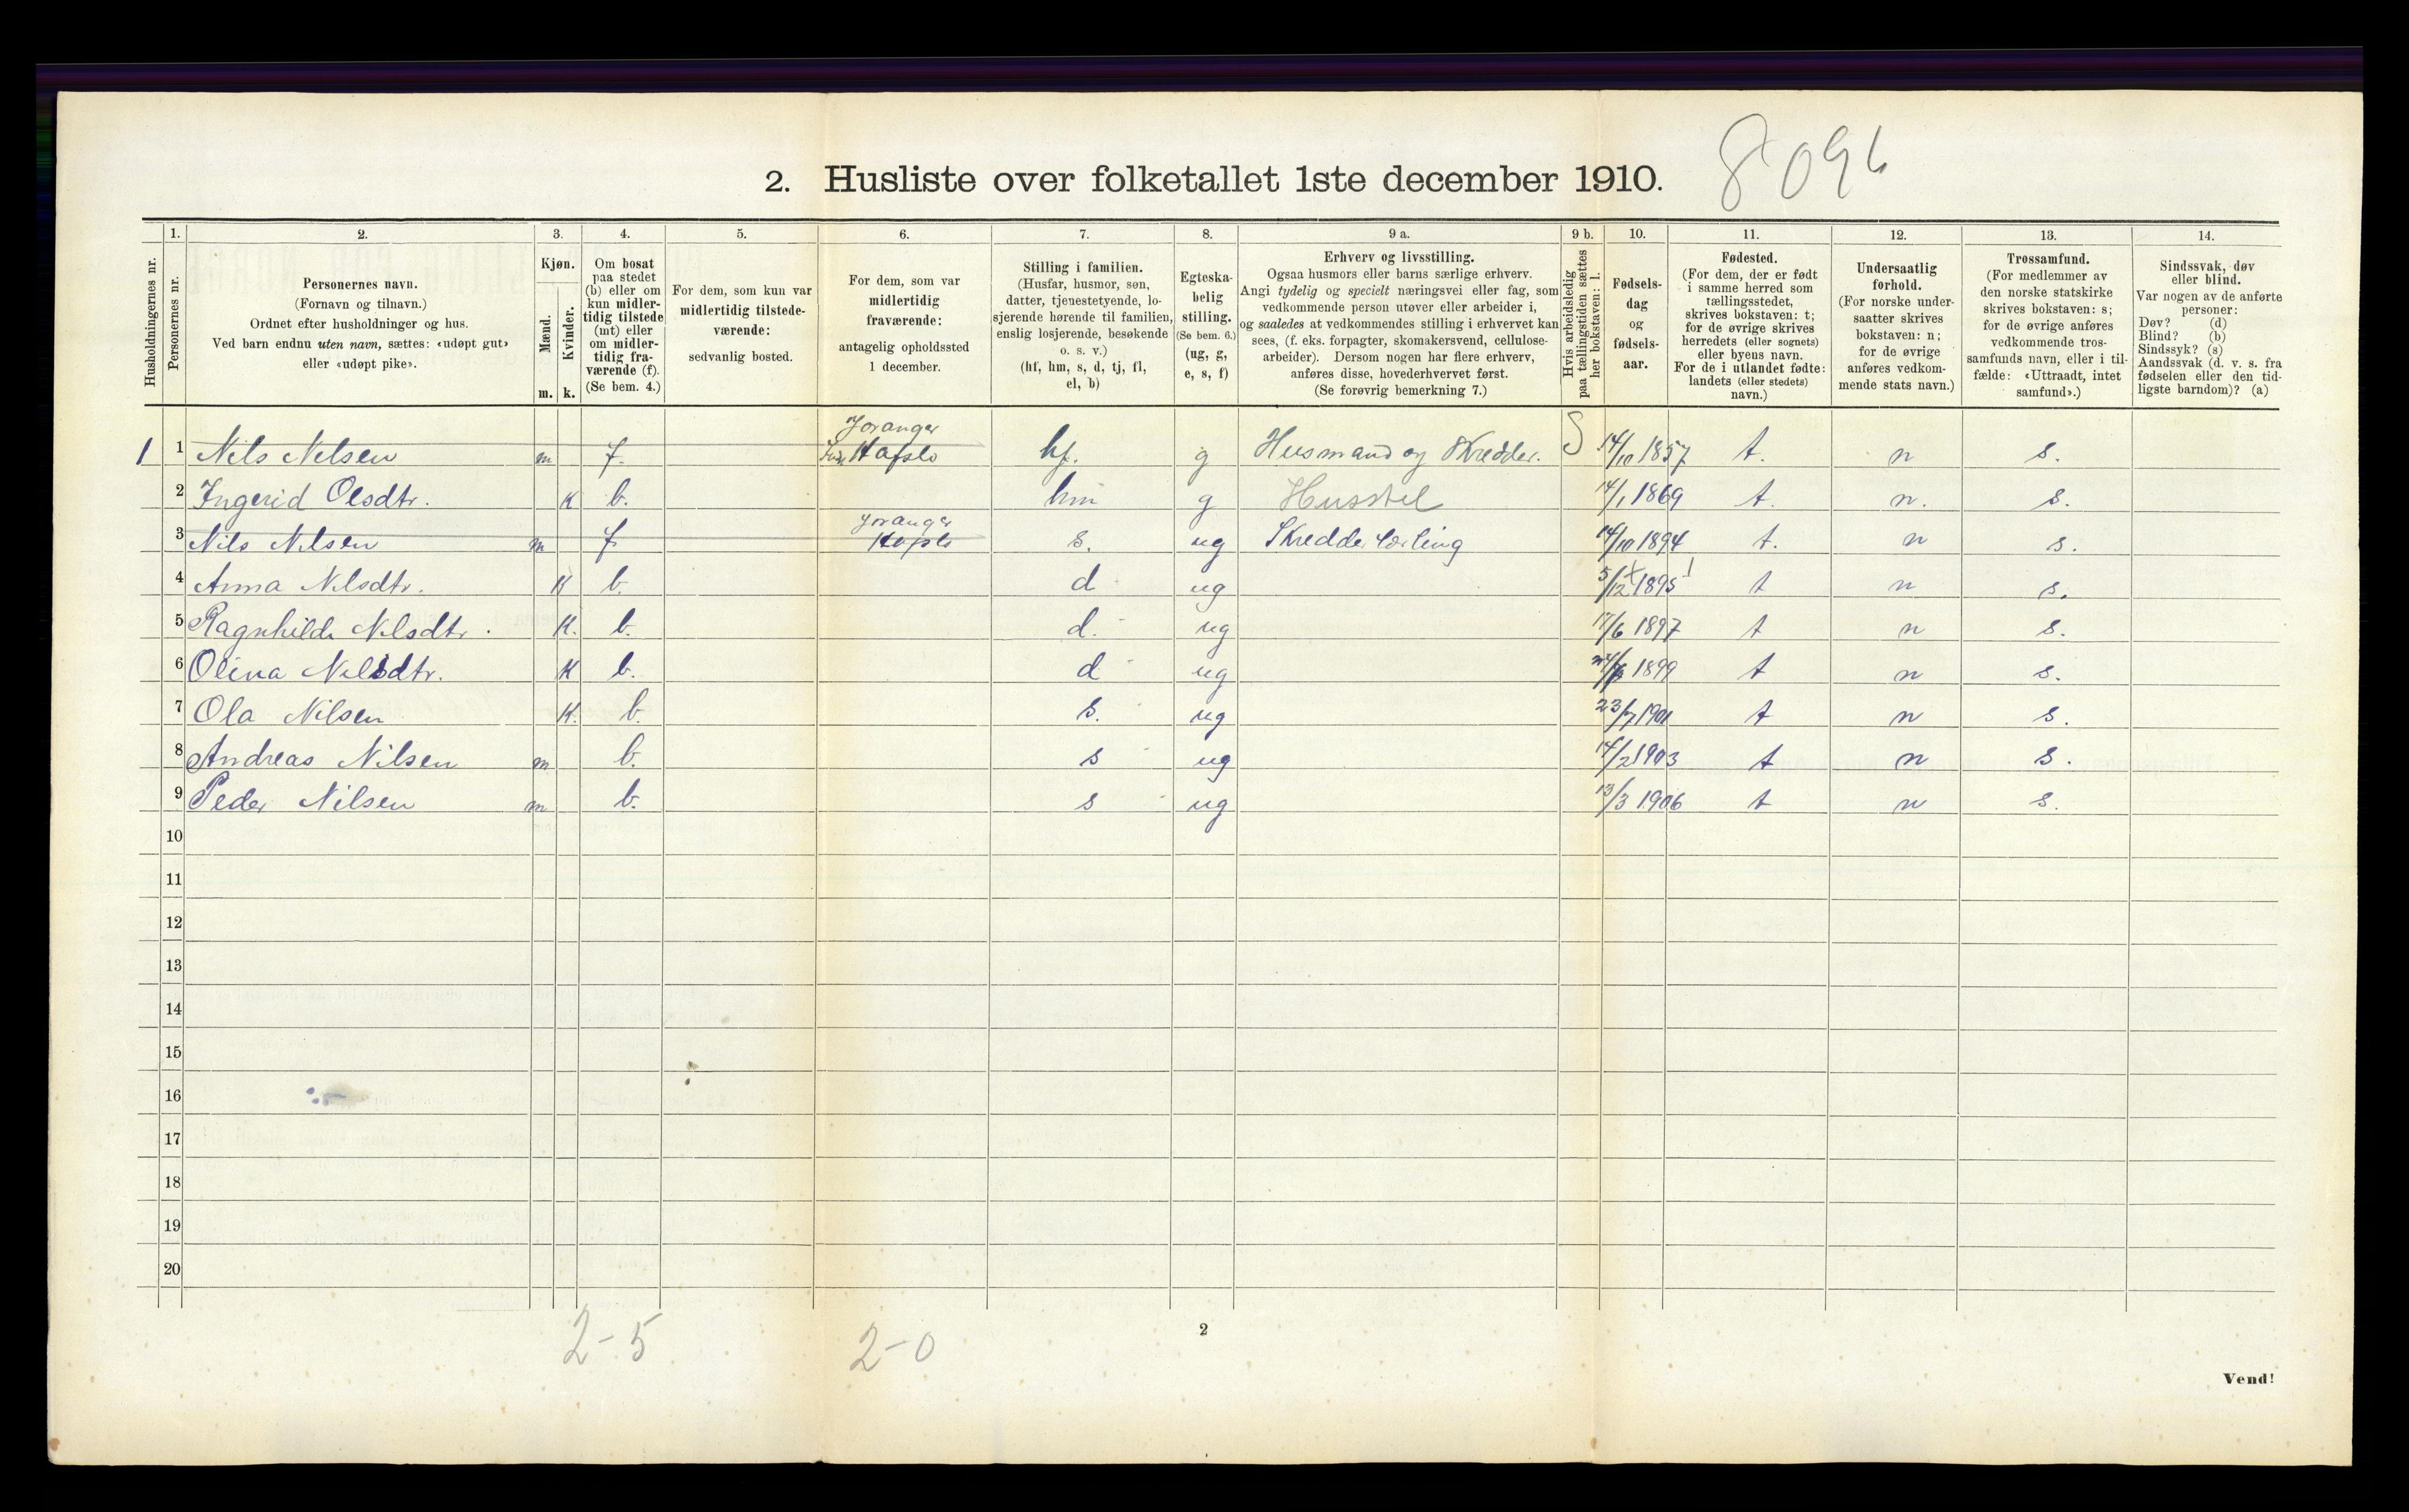 8096
2. Husliste over folketallet 1ste december 1910.
Husholdningernes nr.
1.
Personernes nr.
2.
Personernes navn.
(Fornavn og tilnavn.)
Ordnet efter husholdninger og hus.
Ved barn endnu uten navn, sættes: «udøpt gut»
eller «udøpt pike».
3.
Kjøn.
Mænd.
Kvinder.
m. k.
4.
Om bosat
paa stedet
(b) eller om
kun midler-
tidig tilstede
(mt) eller
om midler-
tidig fra-
værende (f).
(Se bem. 4.)
5.
For dem, som kun var
midlertidig tilstede-
værende:
sedvanlig bosted.
6.
For dem, som var
midlertidig
fraværende:
antagelig opholdssted
1 december.
7.
Stilling i familien.
(Husfar, husmor, søn,
datter, tjenestetyende, lo-
sjerende hørende til familien,
enslig losjerende, besøkende
o. s. v.)
(hf, hm, s, d, tj, fl,
el, b)
8.
Egteska-
belig
stilling.
(Se bem. 6.)
(ug, g,
e, s, f)
9 a.
Erhverv og livsstilling.
Ogsaa husmors eller barns særlige erhverv.
Angi tydelig og specielt næringsvei eller fag, som
vedkommende person utøver eller arbeider i,
og saaledes at vedkommendes stilling i erhvervet kan
sees, (f. eks. forpagter, skomakersvend, cellulose-
arbeider). Dersom nogen har flere erhverv,
anføres disse, hovederhvervet først.
(Se forøvrig bemerkning 7.)
9 b.
Hvis arbeidsledig
paa tællingstiden sættes
her bokstaven: l.
10.
Fødsels-
dag
og
fødsels-
aar.
11.
Fødested.
(For dem, der er født
i samme herred som
tællingsstedet,
skrives bokstaven: t;
for de øvrige skrives
herredets (eller sognets)
eller byens navn.
For de i utlandet fødte:
landets (eller stedets)
navn.)
12.
Undersaatlig
forhold.
(For norske under-
saatter skrives
bokstaven: n;
for de øvrige
anføres vedkom-
mende stats navn.)
13.
Trossamfund.
(For medlemmer av
den norske statskirke
skrives bokstaven: s;
for de øvrige anføres
vedkommende tros-
samfunds navn, eller i til-
fælde: «Uttraadt, intet
samfund».)
14.
Sindssvak, døv
eller blind.
Var nogen av de anførte
personer:
Døv? (d)
Blind? (b)
Sindssyk? (s)
Aandssvak (d. v. s. fra
fødselen eller den tid-
ligste barndom)? (a)
Joranger
1 1 Nils Nilsen m f. Hafslo hf. g Husmand og Skredder. S 14/10 1857 t. n s.
2 Ingerid Olsdtr. K b. hm g Husstel 14/1 1869 t. n. s.
Joranger
3 Nils Nilsen m f Hafslo s. ug Skredderlærling 14/10 1894 t. n s.
4 Anna Nilsdtr. K b. d ug 5/12 1895 t n s.
5 Ragnhilda Nilsdtr. K. b. d. ug 17/6 1897 t n s.
6 Olina Nilsdtr. K b. d ug 1899 t n s.
7 Ola Nilsen K. b. s. ug 23/7 1901 t n s.
8 Andreas Nilsen m b. s ug 14/2 1903 t n s.
9 Peder Nilsen m b. s ug 13/3 1906 t n s.
10
11
12
13
14
15
16
17
18
19
20
2-5
2-0
2
Vend!